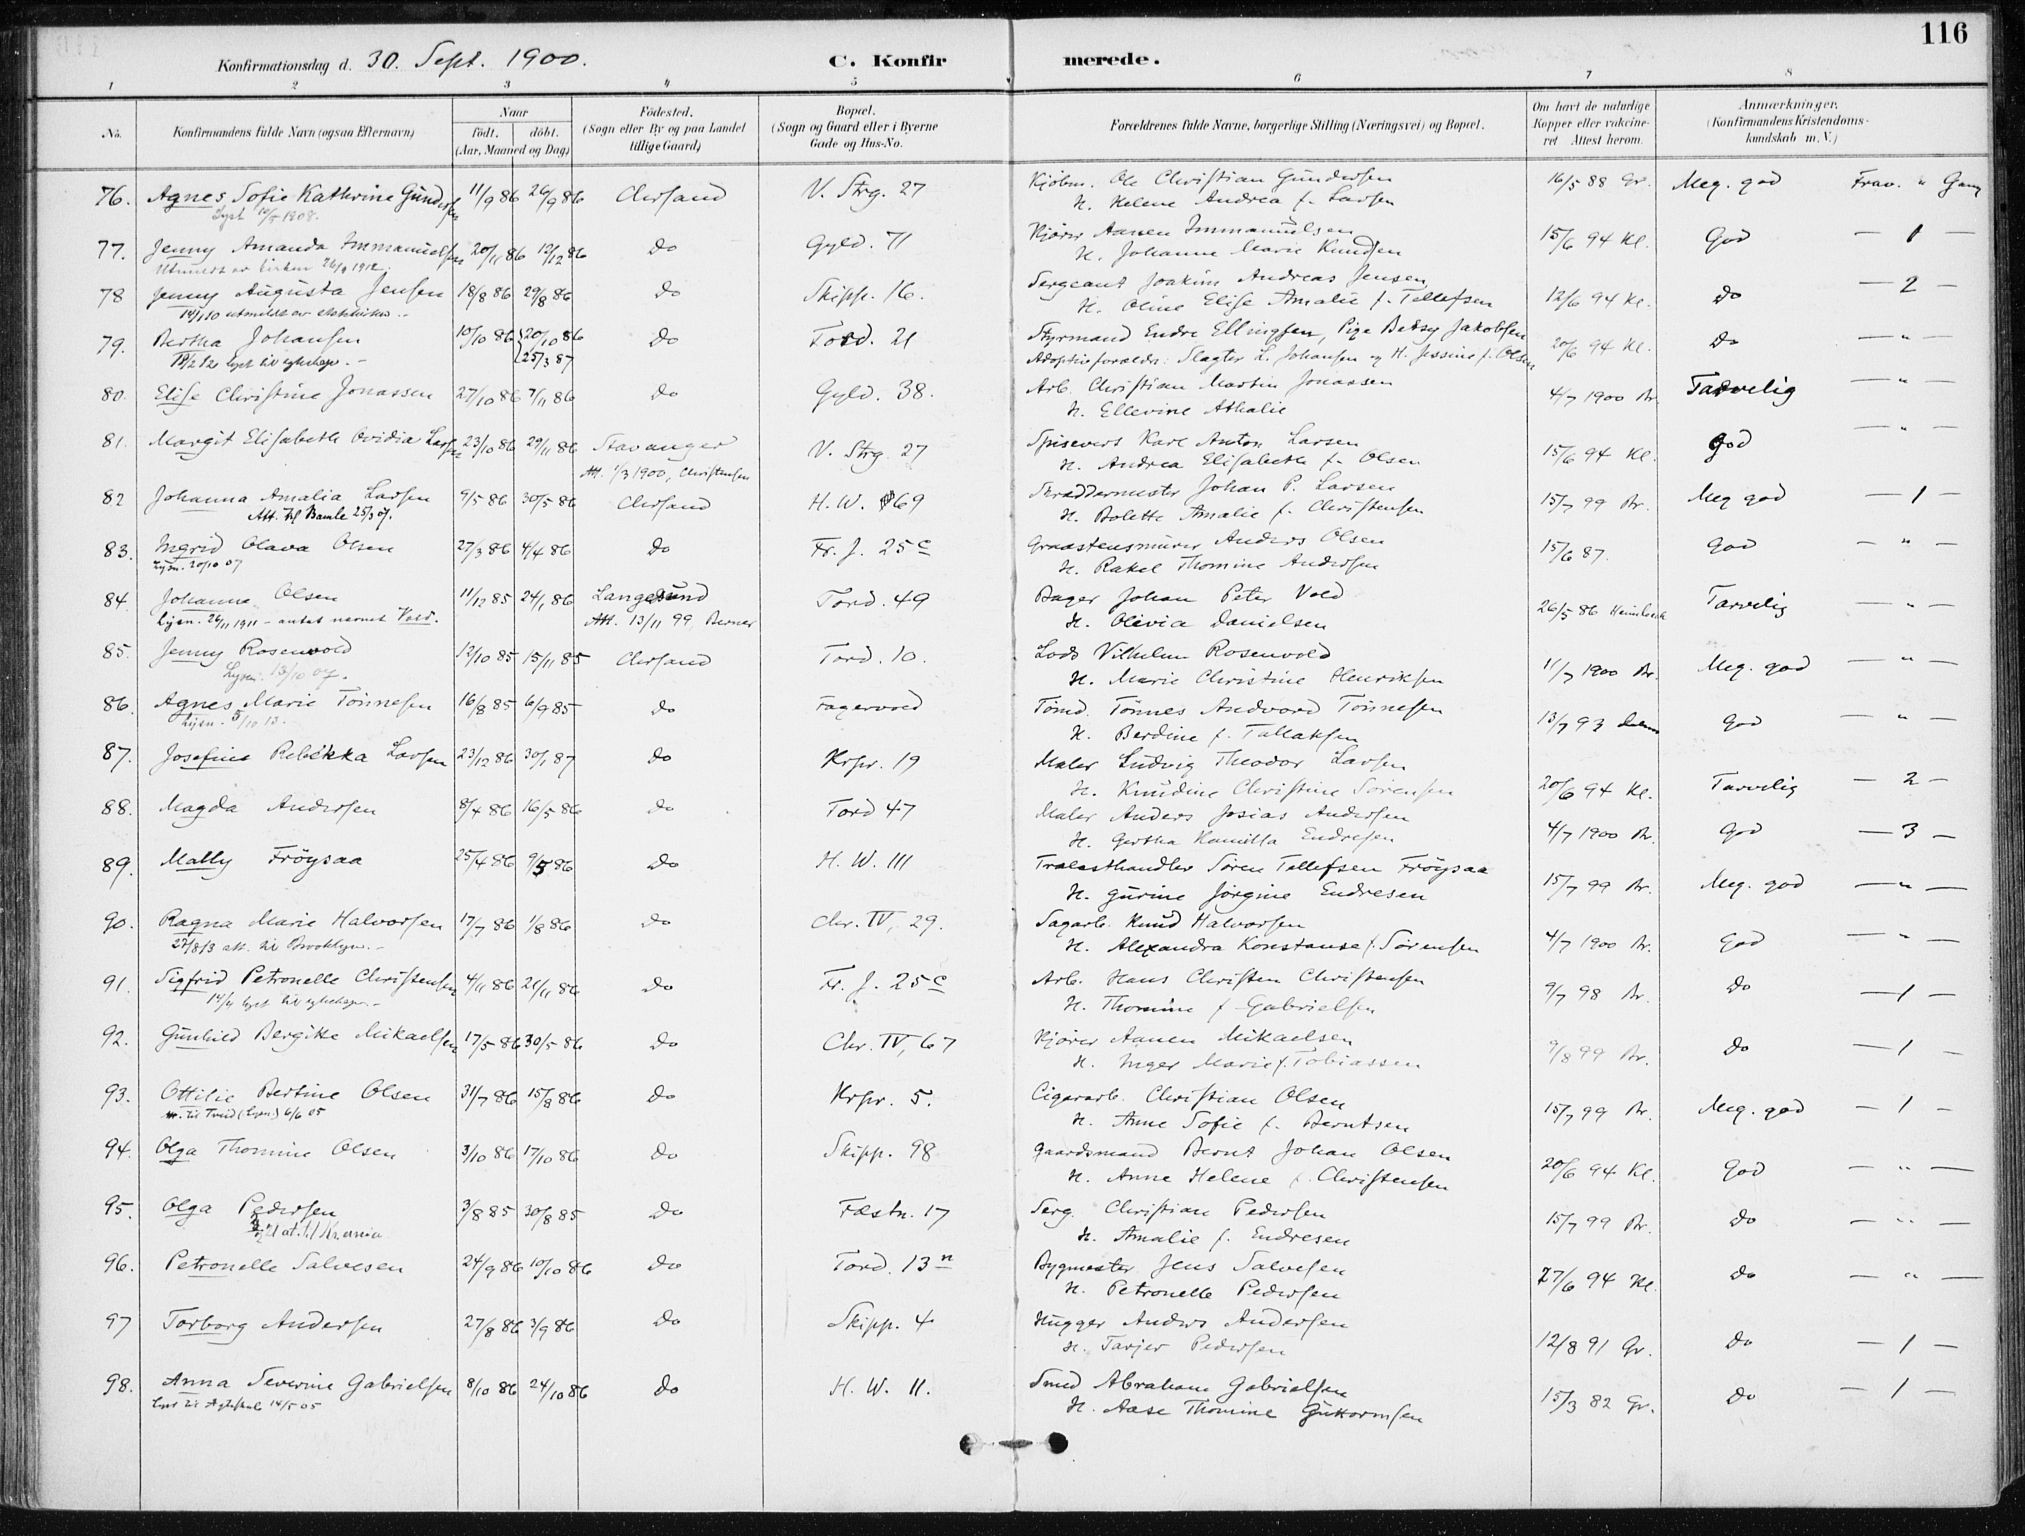 116
Konfirmationsdag d. 30. Sept. 1900. C. Konfirmerede.
1 2 3 4 5 6 7 8
No. Konfirmandens fulde Navn (ogsaa Efternavn) Naar født. døbt. (Aar, Maaned og Dag) Fødested. (Sogn eller By og paa Landet tillige Gaard) Bopæl. (Sogn og Gaard eller i Byerne Gade og Hus-No. Forældrenes fulde Navne, borgerlige Stilling (Næringsvei) og Bopæl. Om havt de naturlige Kopper eller vakcineret Attest herom. Anmærkninger, (Konfirmandens Kristendomskundskab m. V.)
76. Agnes Sofie Kathrine Gundersen 11/9 86 26/9 86 Chrsand V. Strg. 27 Kjøbm. Ole Christian Gundersen 16/5 88 Gr. Meg. god Frav. " Gang
Lyst 1908. H. Helene Andrea f. Larsen
77. Jenny Amanda Immanuelsen 20/11 86 12/12 86 do Gyld. 71 Kjører Aanen Immanuelsen 15/6 94 Kl. God — 1 —
Utmeldt av kirken 26/9 1912. H. Johanne Marie Knudsen
78 Jenny Augusta Jensen 18/8 86 29/8 86 do Skipp. 16. Sergeant Joakim Andreas Jensen 12/6 94 Kl. do — 2 —
14/1 10 utmeldt av statskirken H. Oline Elise Amalie f. Tellefsen
79. Bertha Johansen 10/10 86 20/10 86 do Tord. 21 Styrmand Endre Ellingsen, Pige Betsy Jakobsen 20/6 94 Kl. do — " —
lyst til ægteskap. — 25/3 87 Adoptivforældr: Slagter L. Johansen og H. Jessine f. Olsen
80. Elise Christine Jonassen 27/10 86 7/11 86 do Gyld. 38. Arb. Christian Martin Jonassen 4/7 1900 Br. Tarvelig — " —
H. Ellevine Athalie
81. Margit Elisabeth Ovidia Larsen 23/10 86 29/11 86 Stavanger V. Strg. 27 Spisevert Karl Anton Larsen 15/6 94 Kl. god — " —
Att. 1/3 1900, Christensen H. Andrea Elisabeth f. Olsen
82 Johanna Amalia Larsen 9/5 86 30/5 86 Chrsand H. W. 69 Skræddermester Johan P. Larsen 15/7 99 Br. Meg god — 1 —
Att. til Bamle 25/3 07. H. Bolette Amalie f. Christensen
83. Ingrid Olava Olsen 27/3 86 4/4 86 do Fr. J. 25c Graastensmurer Anders Olsen 15/6 87. god — " —
Lysn. 20/10 07 H. Rakel Thomine Andersen
84. Johanne Olsen 11/12 85 24/1 86 Langesund Tord. 49 Bager Johan Peter Vold 26/5 86 Tarvelig — " —
Lysn. 26/11 1911 – antat navnet Vold. Att. 13/11 99 Berner H. Olivia Danielsen
85. Jenny Rosenvold 12/10 85 15/11 85 Chrsand Tord. 10. Lods Vilhelm Rosenvold 11/7 1900 Br. Meg. god — " —
Lysn. 13/10 07. H. Marie Christine Henriksen
86. Agnes Marie Tönnesen 16/8 85 6/9 85 do Fagervold Tømd. Tönnes Andvord Tönnesen 13/7 93 God — " —
Lysn. 5/10 13. H. Berdine f. Tallaksen
87. Josefine Rebekka Larsen 23/12 86 30/1 87 do Krpr. 19 Maler Ludvig Theodor Larsen 20/6 94 Kl. Tarvelig — 2 —
H. Knudine Christine Sörensen
88. Magda Andersen 8/4 86 16/5 86 do Tord 47 Maler Anders Josias Andersen 4/7 1900 Br. God — 3 —
H. Gertha Kamilla Endresen
89. Mally Fröysaa 25/4 86 9/5 86 do H. W. 111 Trælasthandler Sören Tellefsen Fröysaa 15/7 99 Br. Meg. god — " —
H. Gurine Jörgine Endresen
90. Ragna Marie Halvorsen 17/7 86 1/8 86 do Chr. IV, 29. Sagarb. Knud Halvorsen 4/7 1900 Br. God — " —
27/8 13 att. til Brooklyn. — H. Alexandra Konstanse f. Sörensen
91. Sigfrid Petronelle Christensen 4/11 86 21/11 86 do Fr. J. 25c Arb. Hans Christen Christensen 9/7 98 Br. do — 1 —
lyst til ægteskap — H. Thomine f. Gabrielsen
92. Gunhild Bergitte Mikaelsen 17/5 86 30/5 86 do Chr. IV, 67 Kjører Aanen Mikaelsen 9/8 99 Br. do — 1 —
H. Inger Marie f. Tobiassen
93. Ottilie Bertine Olsen 31/7 86 15/8 86 do Krpr. 5. Cigararb. Christian Olsen 15/7 99 Br. Meg. god — 1 —
til Tveid (Lysn.) 6/6 05 H. Anne Sofie f. Berntsen
94. Olga Thomine Olsen 3/10 86 17/10 86 do Skipp. 98 Gaardsmand Bernt Johan Olsen 20/6 94 Kl. God — " —
H. Anne Helene f. Christensen
95. Olga Pedersen 3/8 85 30/8 85 do Fæstn. 17 Serg. Christian Pedersen 15/7 99 Br. do — " —
at. til Kr.ania H. Amalie f. Endresen
96. Petronelle Salvesen 24/9 86 10/10 86 do Tord. 13n Bygmester Jens Salvesen 27/6 94 Kl. do — " —
H. Petronelle Pedersen
97 Torborg Andersen 27/8 86 3/9 86 do Skipp. 4 Hugger Anders Andersen 12/8 91 Gr. do — 1 —
H. Tarjer Pedersen
98. Anna Severine Gabrielsen 8/10 86 24/10 86 do H. W. 11. Smed Abraham Gabrielsen 15/3 82 Gr. do — 1 —
Lyst til Ægtesk. 14/5 05 H. Aase Thomine Guttormsen